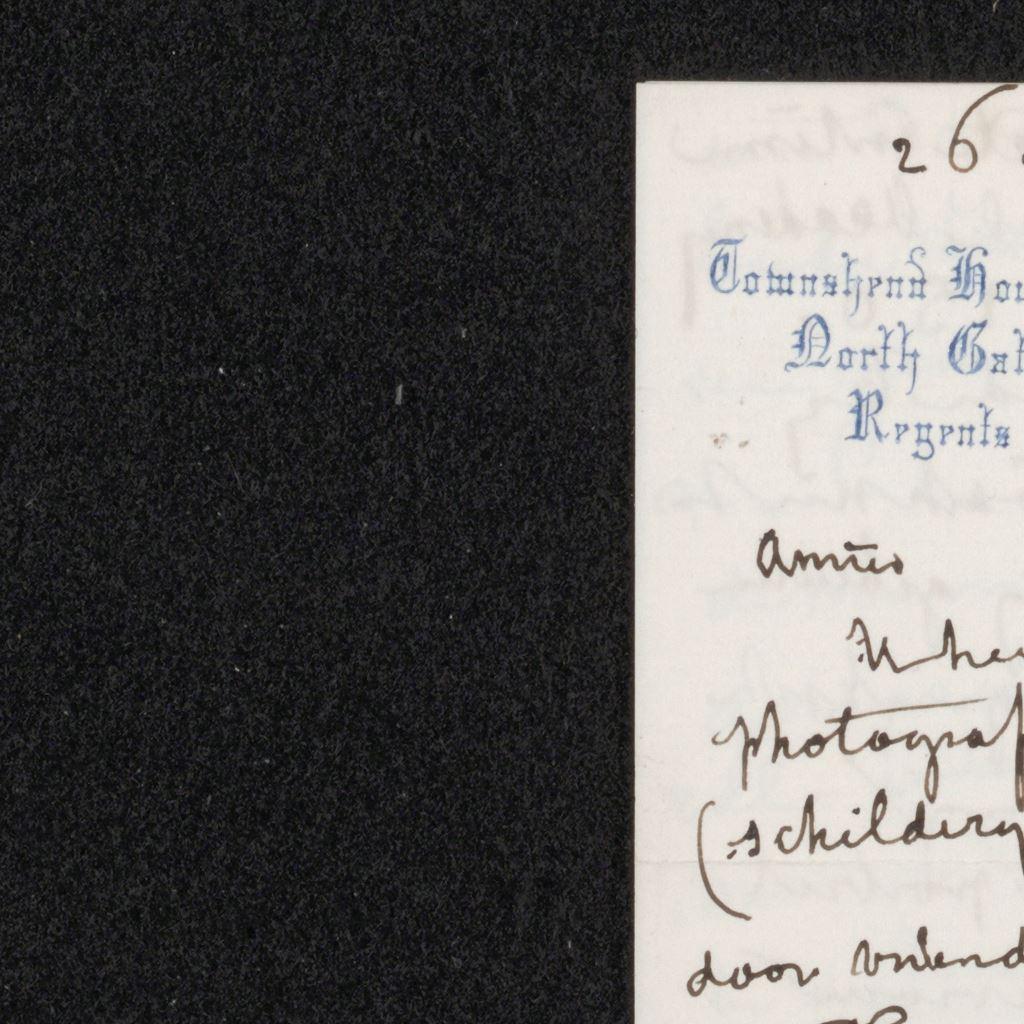 26
Townshend Hou
North Gat
Regents
Amice
U he
photograf
(schildery
door vriend